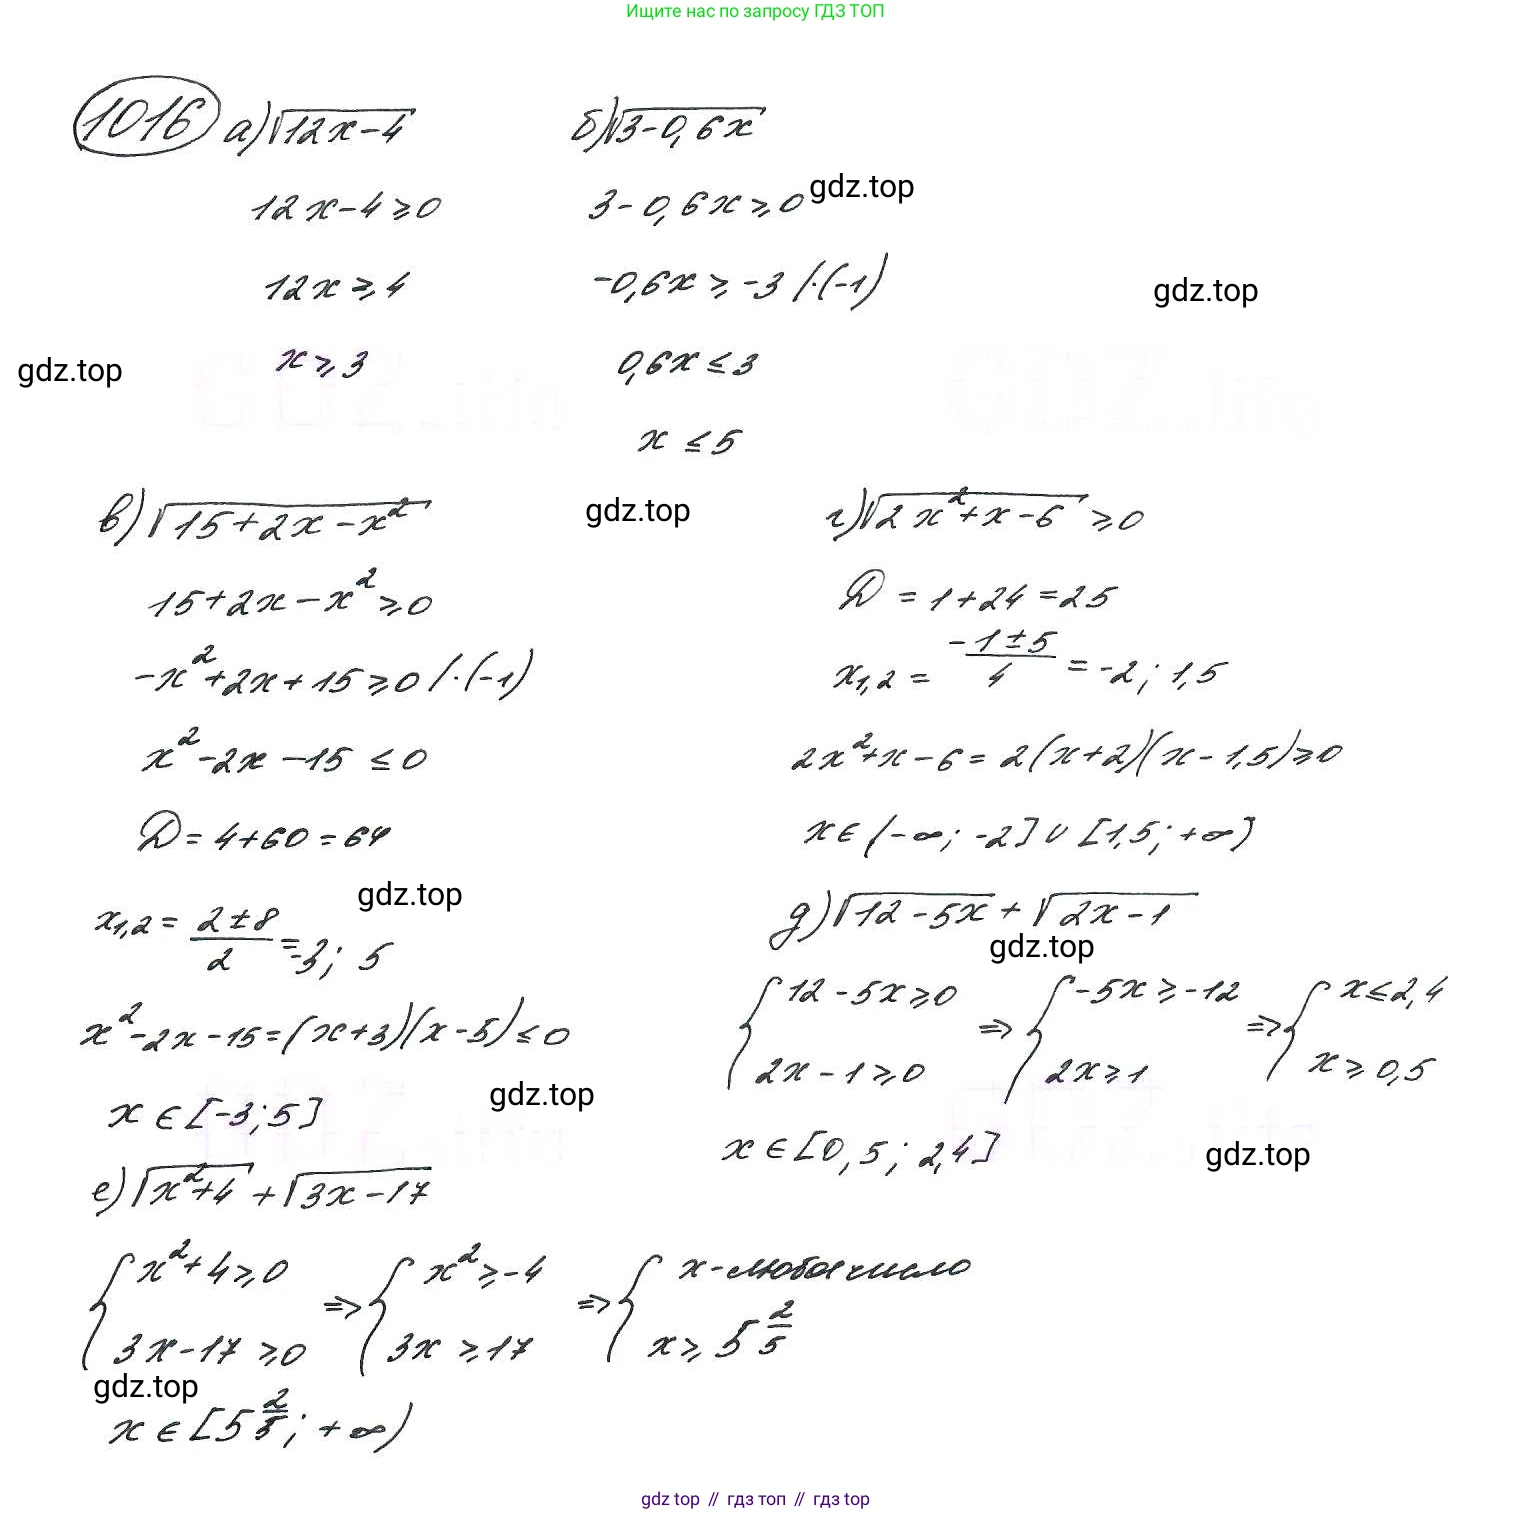 Ищите нас по запросу ГДЗ ТОП
1016 а) √12x-4
12x-4≥0
12x≥4
x≥3
б) √3-0,6x
3-0,6x≥0
gdz.top
-0,6x≥-3 /·(-1)
gdz.top
0,6x≤3
gdz.top
x≤5
в) √15+2x-x²
gdz.top
15+2x-x²≥0
-x²+2x+15≥0 /·(-1)
x²-2x-15≤0
D=4+60=64
gdz.top
x1,2 = (2±8)/2 = -3; 5
x²-2x-15=(x+3)(x-5)≤0
gdz.top
x∈[-3;5]
г) √2x²+x-6 ≥0
D=1+24=25
x1,2 = (-1±5)/4 = -2; 1,5
2x²+x-6=2(x+2)(x-1,5)≥0
x∈(-∞; -2]∪[1,5; +∞)
д) √12-5x + √2x-1
gdz.top
{12-5x≥0 ⇒ {-5x≥-12 ⇒ {x≤2,4
2x-1≥0 2x≥1 x≥0,5
x∈[0,5; 2,4]
gdz.top
е) √x²+4 + √3x-17
{x²+4≥0 ⇒ {x²≥-4 ⇒ {x-любое число
3x-17≥0 3x≥17 x≥5 2/5
gdz.top
x∈[5 2/3; +∞)
gdz top // гдз топ // гдз top